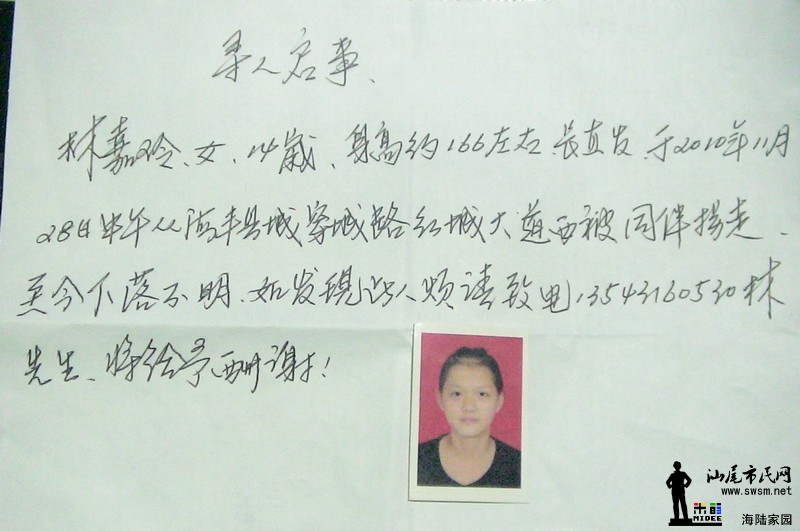 寻人启事、
林嘉玲、女、14岁、身高约166左右、长直发、于2010年11月
28日中午从海丰县城穿城路红城大道西被同伴接走、
至今下落不明、如发现此人烦请致电13543160530林
先生、将给予酬谢！
汕尾市民网
www.swsm.net
MIDEE
海陆家园